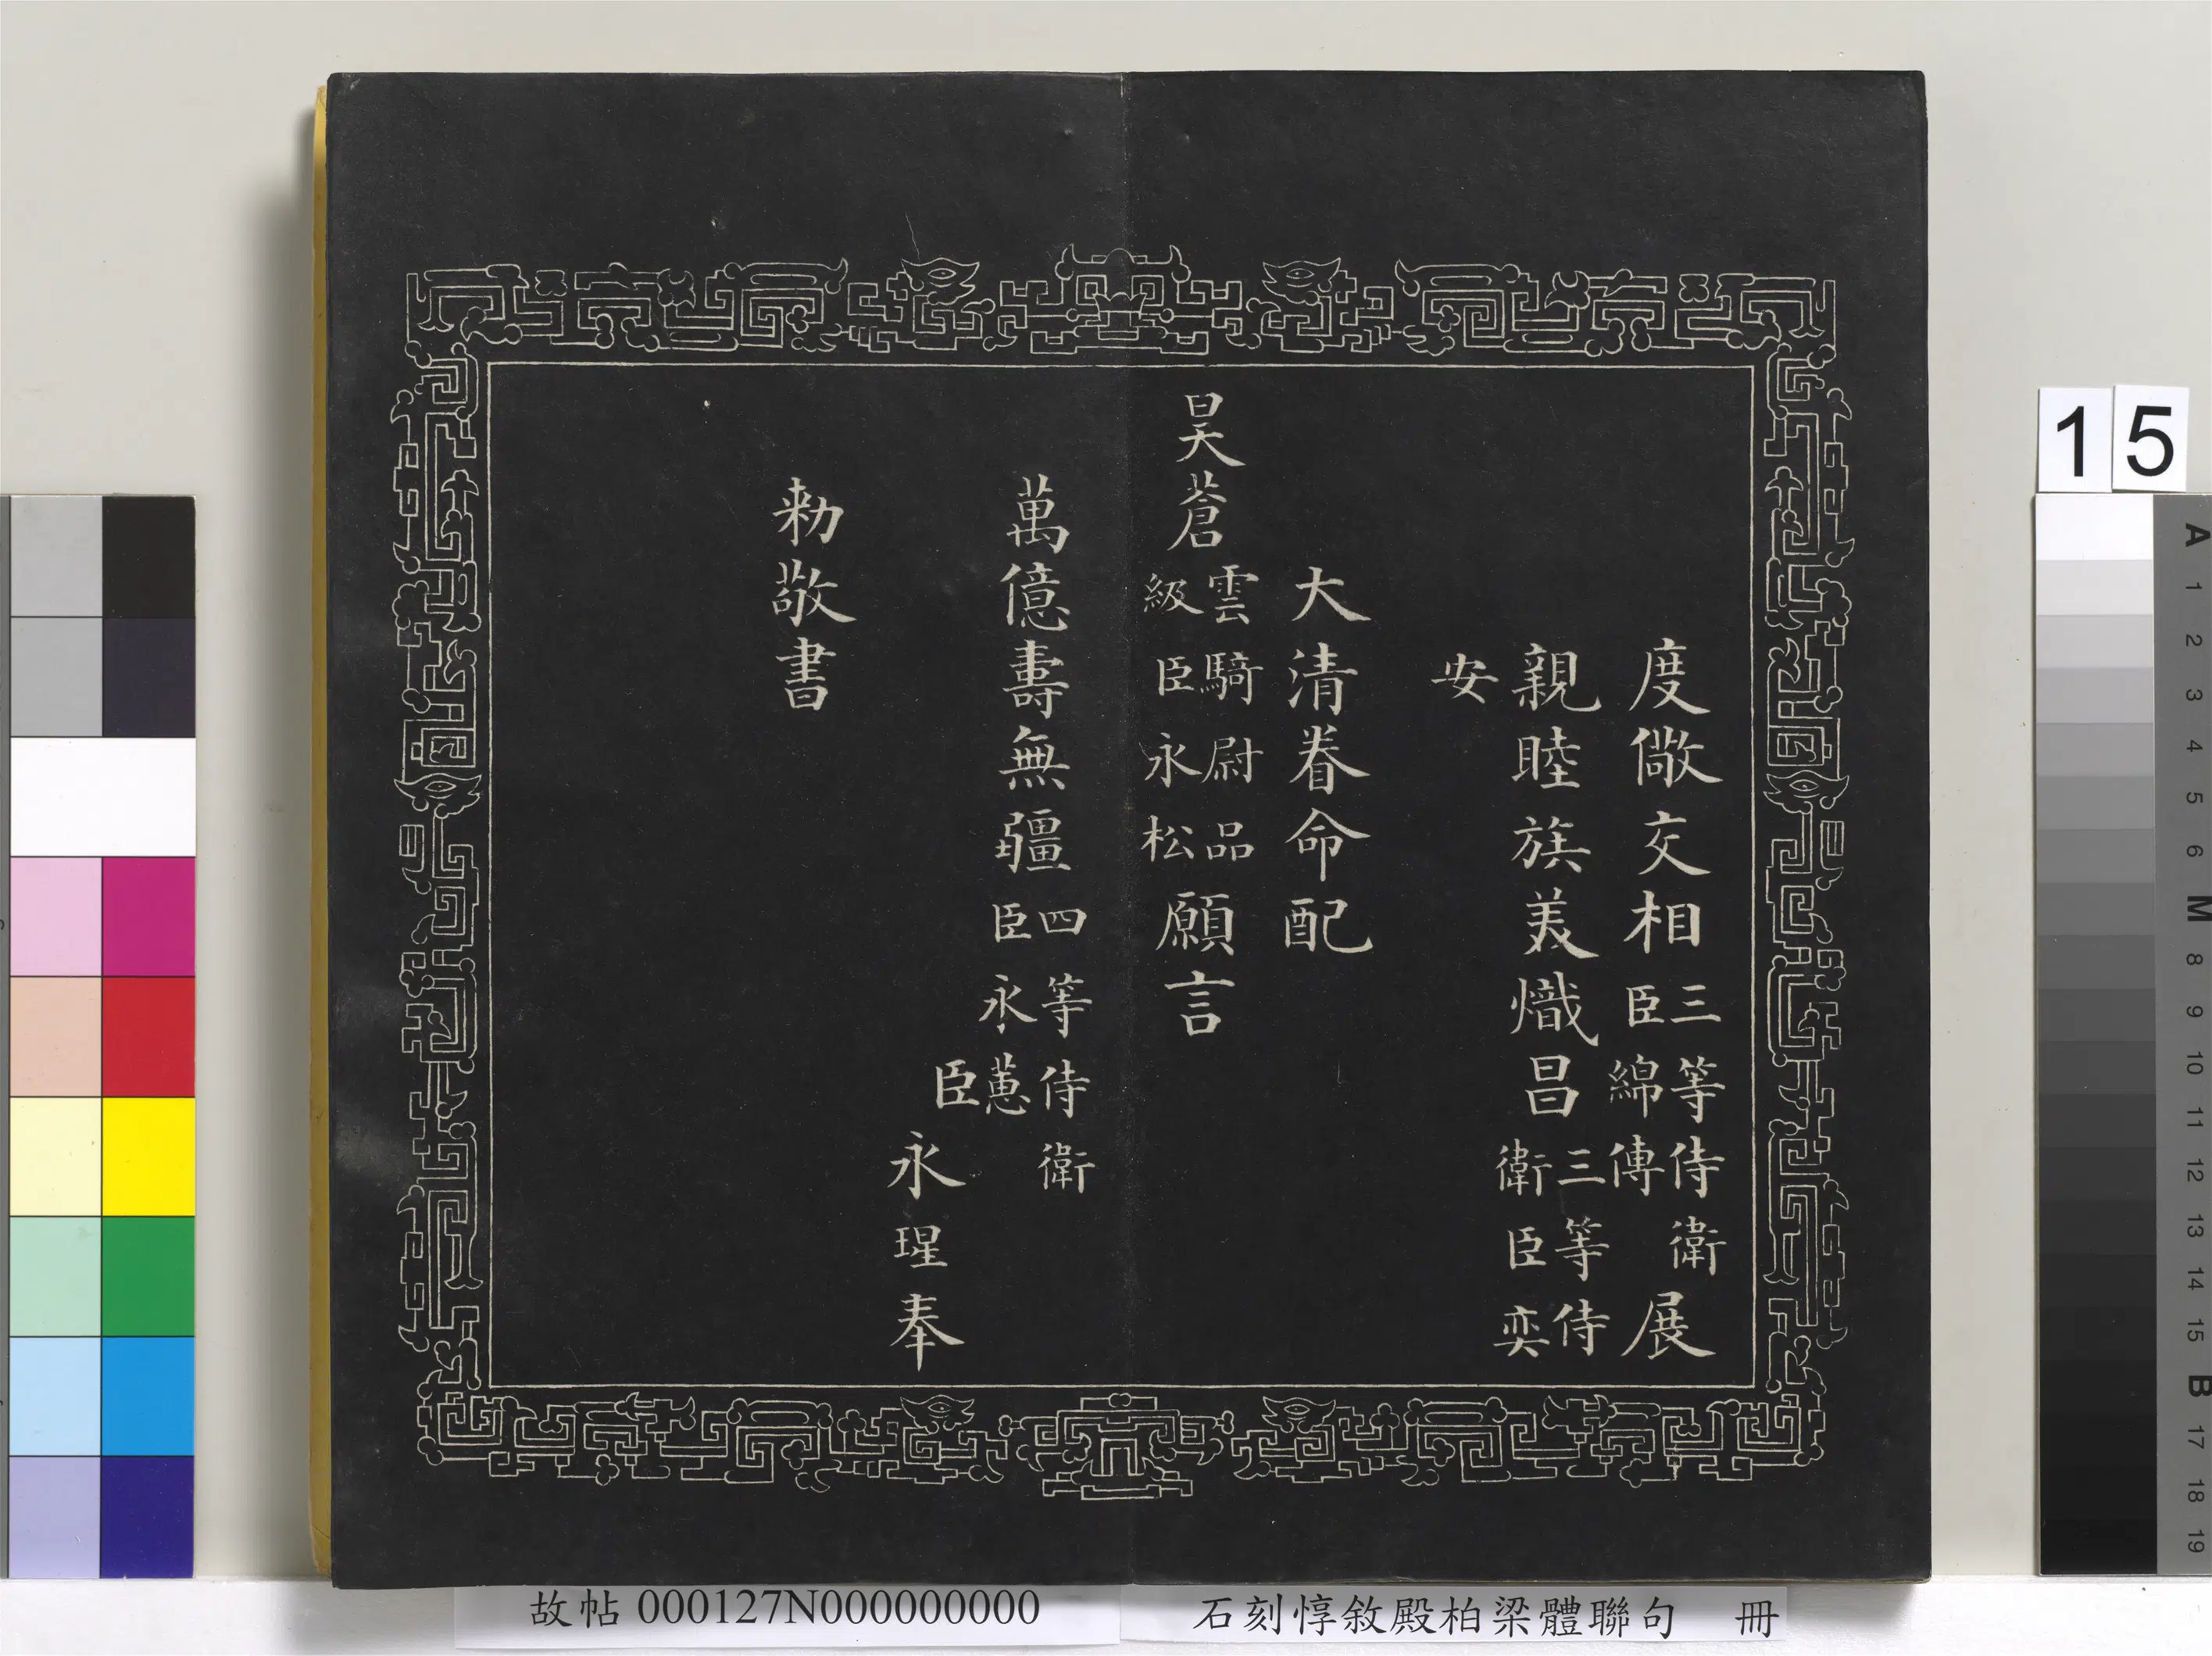 度儆交相三等侍衛臣綿傳展
親睦族美熾昌三等侍衛臣奕
安
大清眷命配
昊蒼雲騎尉品級臣永松願言
萬億壽無疆四等侍衛臣永蕙
臣永瑆奉
勅敬書
15
A 1 2 3 4 5 6 M 8 9 10 11 12 13 14 15 B 17 18 19
故帖 000127N000000000
石刻惇敘殿柏梁體聯句 冊